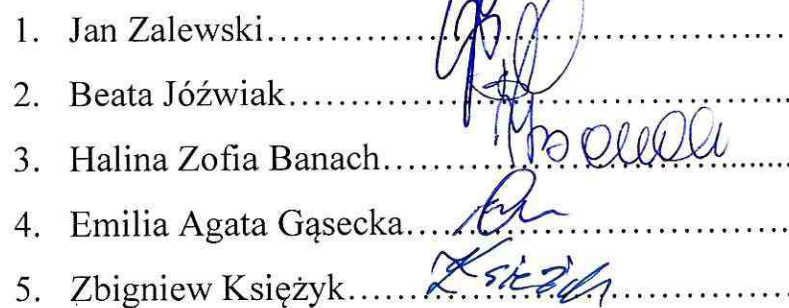 1. Jan Zalewski..........................................
2. Beata Jóźwiak..........................................
3. Halina Zofia Banach..........................................
4. Emilia Agata Gąsecka..........................................
5. Zbigniew Księżyk..........................................